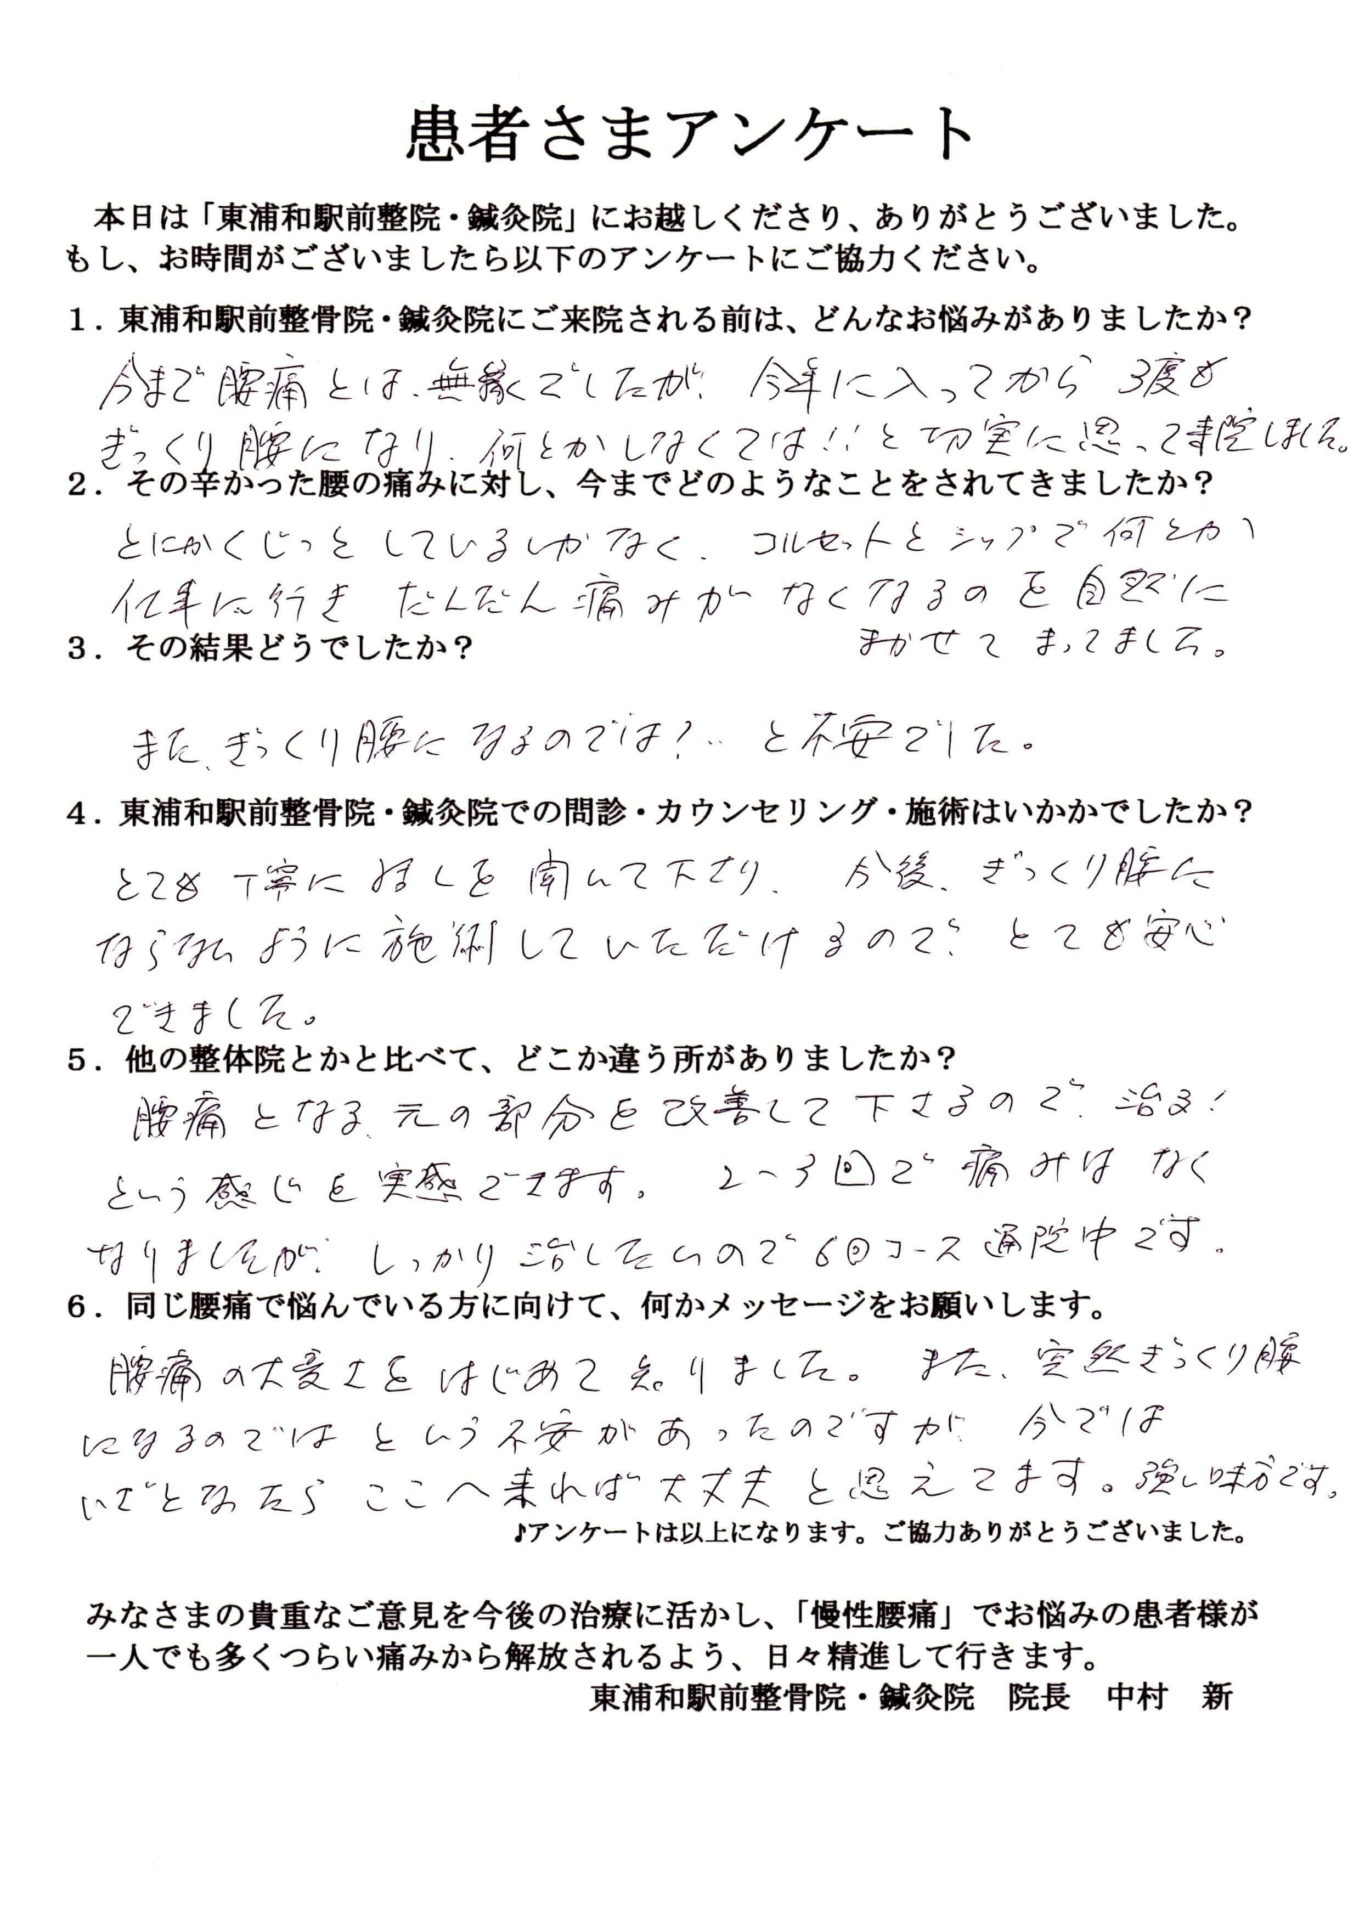 患者さまアンケート
本日は「東浦和駅前整院・鍼灸院」にお越しくださり、ありがとうございました。
もし、お時間がございましたら以下のアンケートにご協力ください。
１．東浦和駅前整骨院・鍼灸院にご来院される前は、どんなお悩みがありましたか？
今まで腰痛とは、無縁でしたが、今年に入ってから３度も
ぎっくり腰になり、何とかしなくては！！と切実に思って来院しました。
２．その辛かった腰の痛みに対し、今までどのようなことをされてきましたか？
とにかくじっとしているしかなく、コルセットとシップで何とか
仕事に行き だんだん痛みがなくなるのを自然に
まかせて まってました。
３．その結果どうでしたか？
また、ぎっくり腰になるのでは？‥と不安でした。
４．東浦和駅前整骨院・鍼灸院での問診・カウンセリング・施術はいかかでしたか？
とても丁寧に話しを聞いて下さり、今後、ぎっくり腰に
ならないように施術していただけるので、とても安心
できました。
５．他の整体院とかと比べて、どこか違う所がありましたか？
腰痛となる、元の部分を改善して下さるので、治る！
という感じを実感できます。２～３回で痛みはなく
なりましたが、しっかり治したいので６回コース通院中です。
６．同じ腰痛で悩んでいる方に向けて、何かメッセージをお願いします。
腰痛の大変さをはじめて知りました。また、突然ぎっくり腰
になるのではという不安があったのですが、今では
いざとなったらここへ来れば大丈夫と思えてます。強い味方です。
♪アンケートは以上になります。ご協力ありがとうございました。
みなさまの貴重なご意見を今後の治療に活かし、「慢性腰痛」でお悩みの患者様が
一人でも多くつらい痛みから解放されるよう、日々精進して行きます。
東浦和駅前整骨院・鍼灸院　院長　中村　新